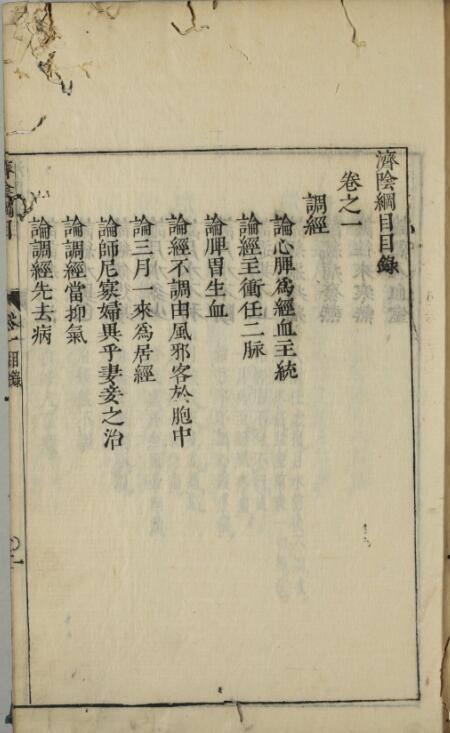 濟陰綱目目錄
卷之一
調經
論心脾爲經血主統
論經主衝任二脉
論脾胃生血
論經不調由風邪客於胞中
論三月一來爲居經
論師尼寡婦異乎妻妾之治
論調經當抑氣
論調經先去病
濟陰綱目
卷一目錄
一